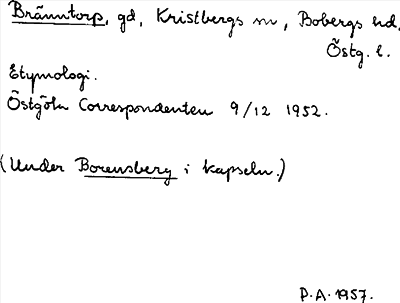 Bränntorp, gd, Kristbergs sn, Bobergs hd,
Östg. l.
Etymologi.
Östgöten Correspondenten 9/12 1952.
(Under Borensberg i kapseln.)
P.A. 1957.